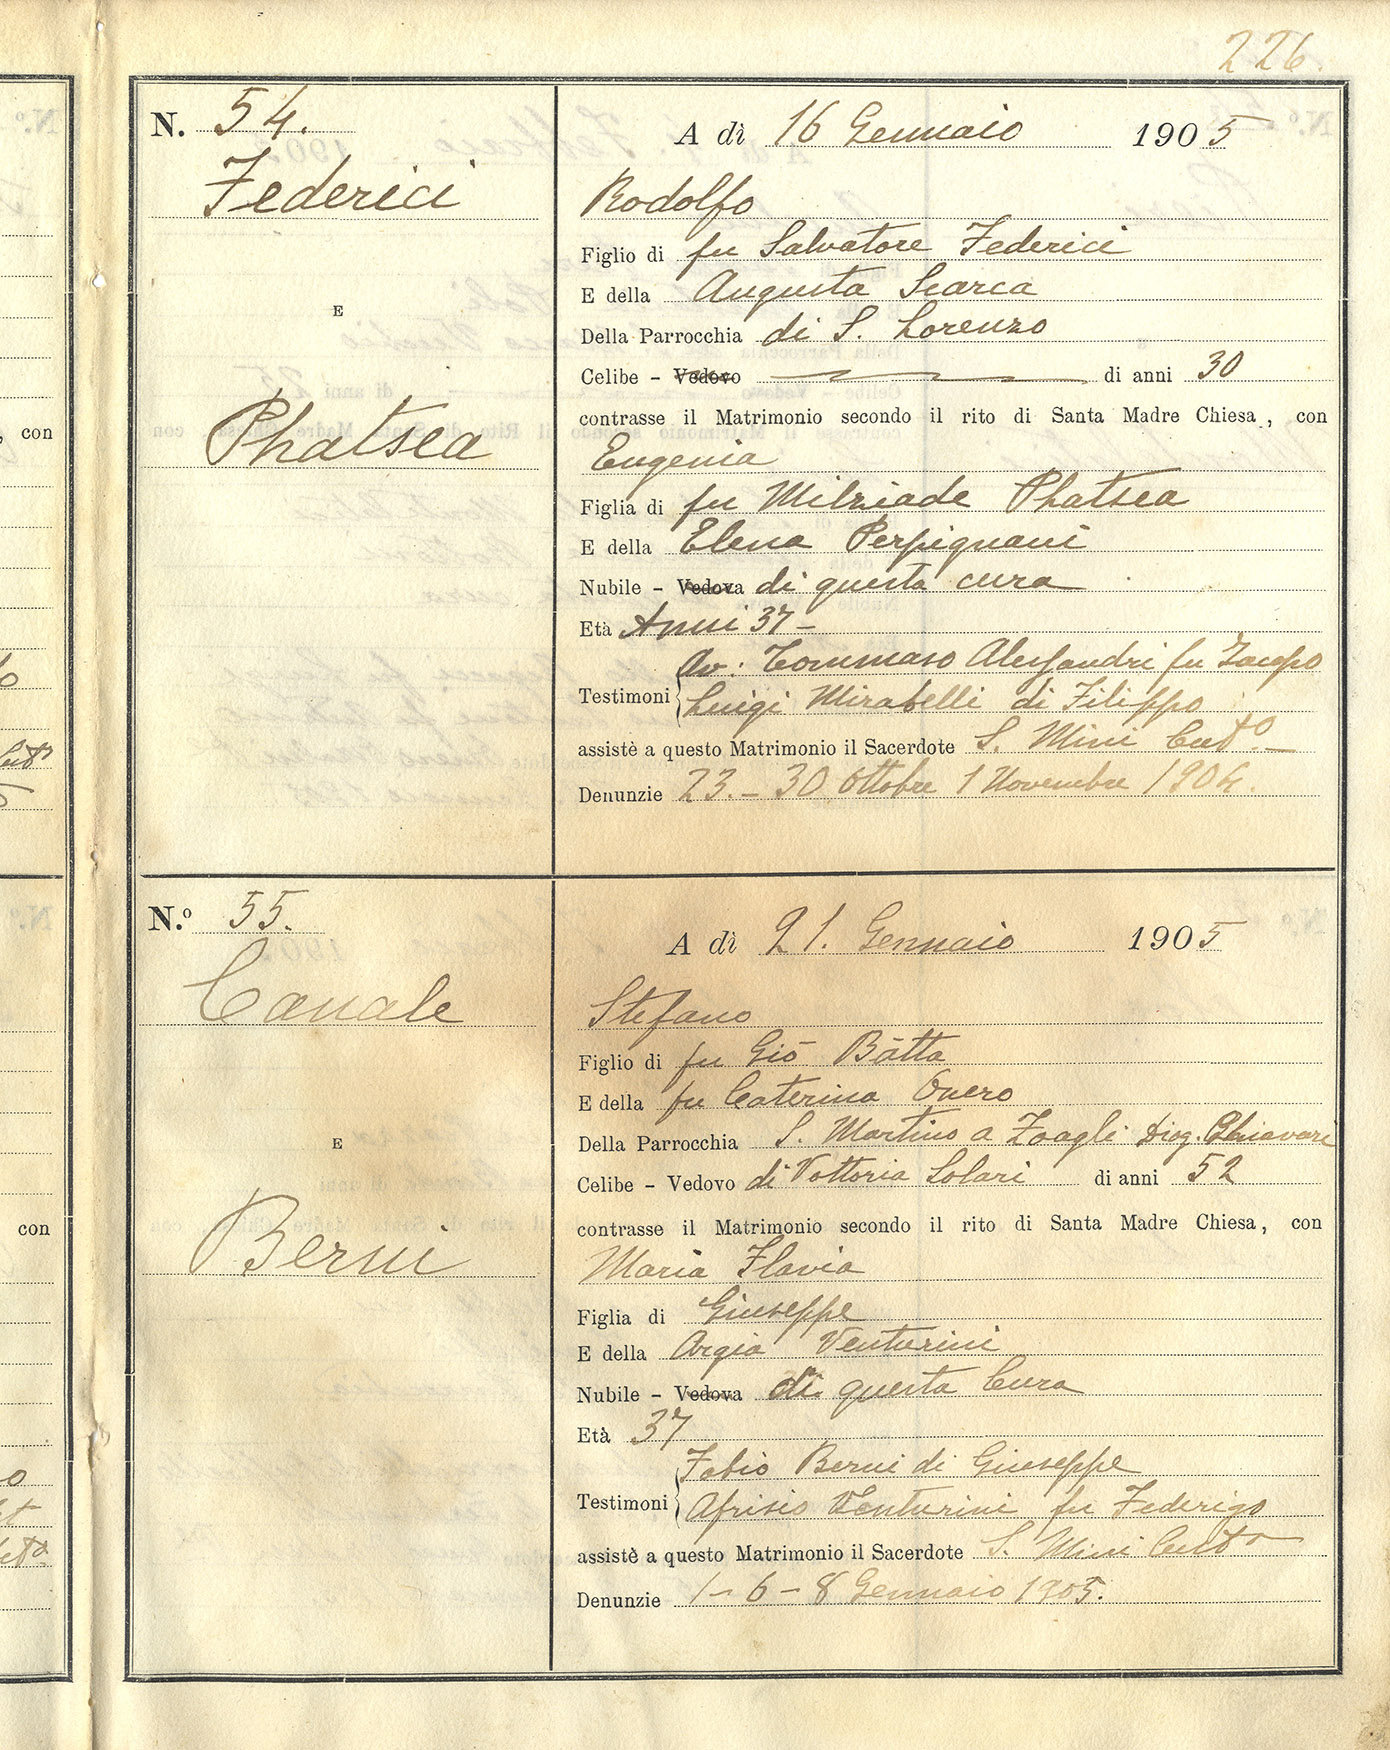 226.
N. 54.
Federici
E
Phatsea
A dì 16 Gennaio 1905
Rodolfo
Figlio di fu Salvatore Federici
E della Augusta Scarca
Della Parrocchia di S. Lorenzo
Celibe - Vedovo di anni 30
contrasse il Matrimonio secondo il rito di Santa Madre Chiesa, con
Eugenia
Figlia di fu Milziade Phatsea
E della Elena Perpignani
Nubile - Vedova di questa cura
Età Anni 37-
Av: Tommaso Alessandri fu Jacopo
Testimoni Luigi Mirabelli di Filippo
assistè a questo Matrimonio il Sacerdote S. Mini Curto.
Denunzie 23.- 30 Ottobre 1 Novembre 1904.
N.o 55.
Canale
E
Berni
A dì 21. Gennaio 1905
Stefano
Figlio di fu Giō Bātta
E della fu Caterina Onero
Della Parrocchia S. Martino a Zoagli Diog. Chiavari
Celibe - Vedovo di Vottoria Solari di anni 52
contrasse il Matrimonio secondo il rito di Santa Madre Chiesa, con
Maria Flavia
Figlia di Giuseppe
E della Argia Venturini
Nubile - Vedova di questa Cura
Età 37
Fabio Berni di Giuseppe
Testimoni Afrisio Venturini fu Federigo
assistè a questo Matrimonio il Sacerdote S. Mini Curto
Denunzie 1 - 6 - 8 Gennaio 1905.
, con
con